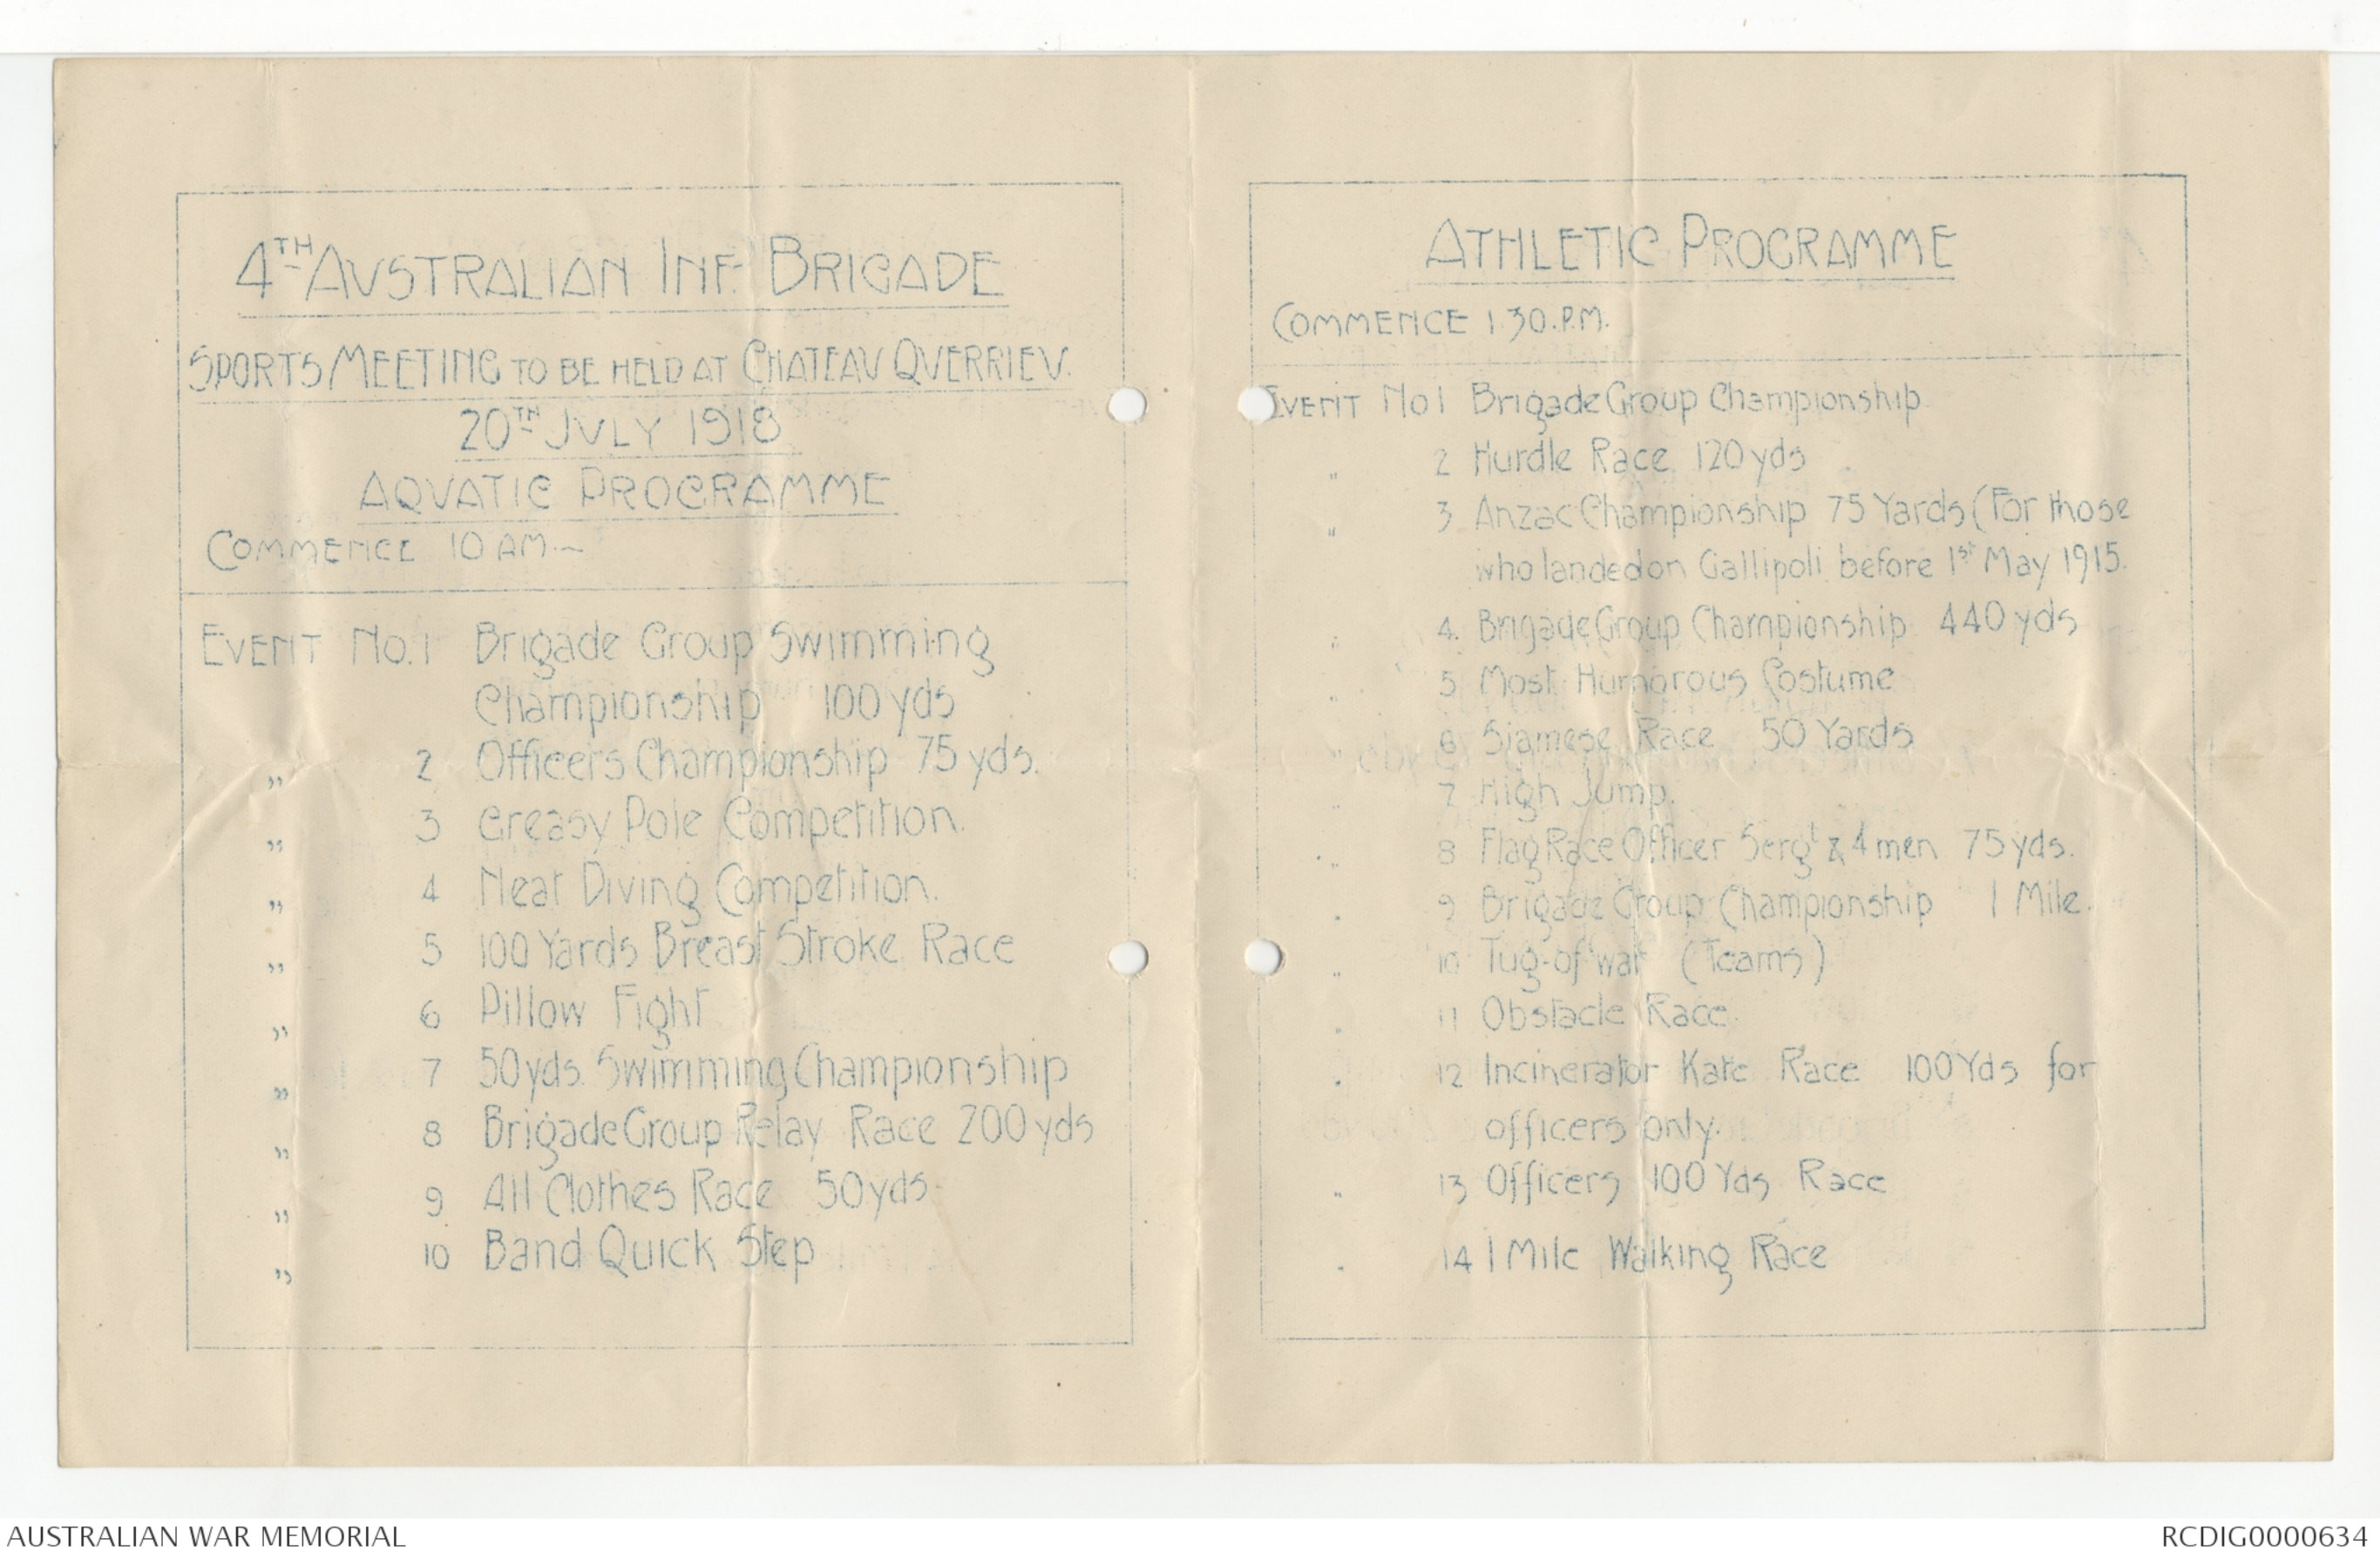 4TH AUSTRALIAN INF. BRIGADE
SPORTS MEETING TO BE HELD AT CHATEAU QUERRIEU.
20TH JULY 1918
AQUATIC PROGRAMME
COMMENCE 10 AM.~
EVENT No. 1 Brigade Group Swimming
Championship 100 yds
" 2 Officers Championship 75 yds.
" 3 Greasy Pole Competition.
" 4 Neat Diving Competition.
" 5 100 Yards Breast Stroke Race
" 6 Pillow Fight
" 7 50 yds. Swimming Championship
" 8 Brigade Group Relay Race 200 yds
" 9 All Clothes Race 50 yds-
" 10 Band Quick Step
ATHLETIC PROGRAMME
COMMENCE 1.30.P.M.
EVENT No 1 Brigade Group Championship
" 2 Hurdle Race 120 yds
" 3 Anzac Championship 75 Yards (For those
who landed on Gallipoli before 1st May 1915.
" 4. Brigade Group Championship 440 yds
" 5 Most Humorous Costume
" 6 Siamese Race 50 Yards
" 7 High Jump.
" 8 Flag Race Officer Sergt & 4 men 75 yds.
" 9 Brigade Group Championship 1 Mile.
" 10 Tug-of war (Teams)
" 11 Obstacle Race.
" 12 Incinerator Kate Race 100 Yds for
officers only.
" 13 Officers 100 Yds Race
" 14 1 Mile Walking Race
AUSTRALIAN WAR MEMORIAL
RCDIG0000634